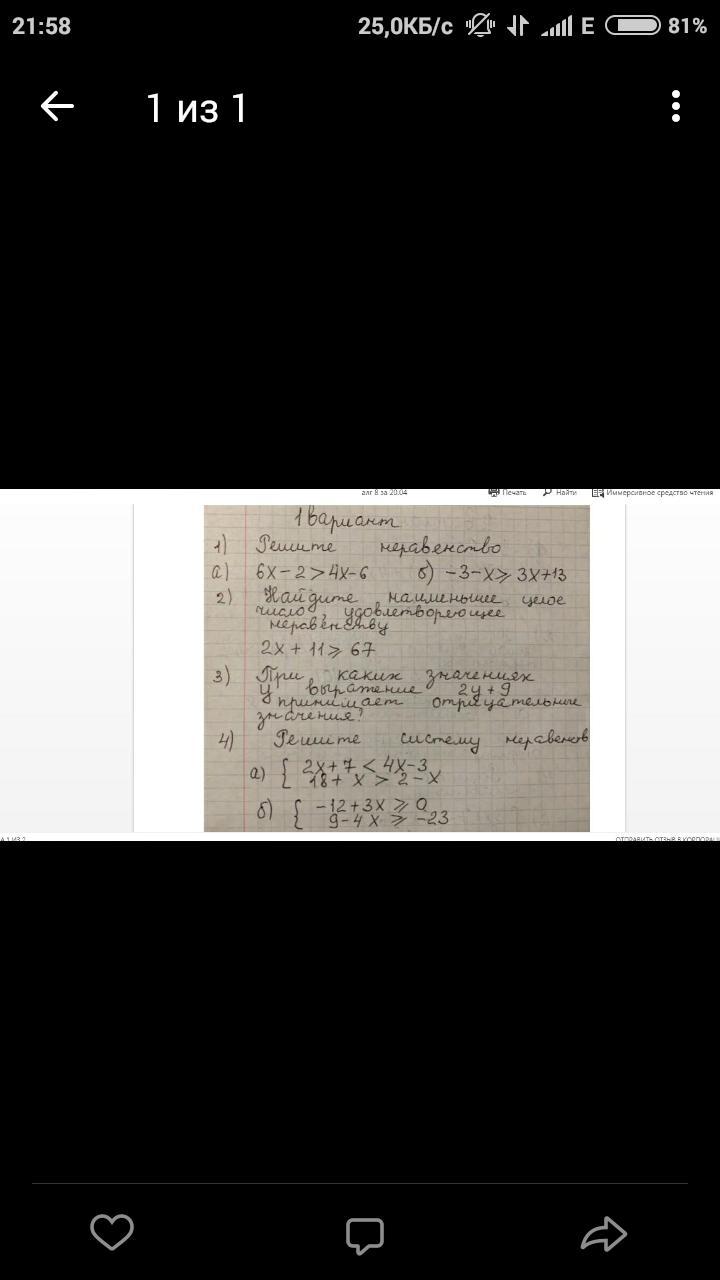 21:58 25,0КБ/с E 81%
1 из 1
алг 8 за 20.04 Печать Найти Иммерсивное средство чтения
1 Вариант
1) Решите неравенство
а) 6х-2>4х-6 б) -3-х⩾3х+13
2) Найдите наименьшее целое
число, удовлетворяющее
неравенству
2х+11⩾67
3) При каких значениях
у выражение 2у+9
принимает отрицательные
значения?
4) Решите систему неравенств
а) { 2х+7<4х-3
18+х>2-х
б) { -12+3х⩾0
9-4х⩾-23
А 1 ИЗ 2 ОТПРАВИТЬ ОТЗЫВ В КОРПОРАЦ